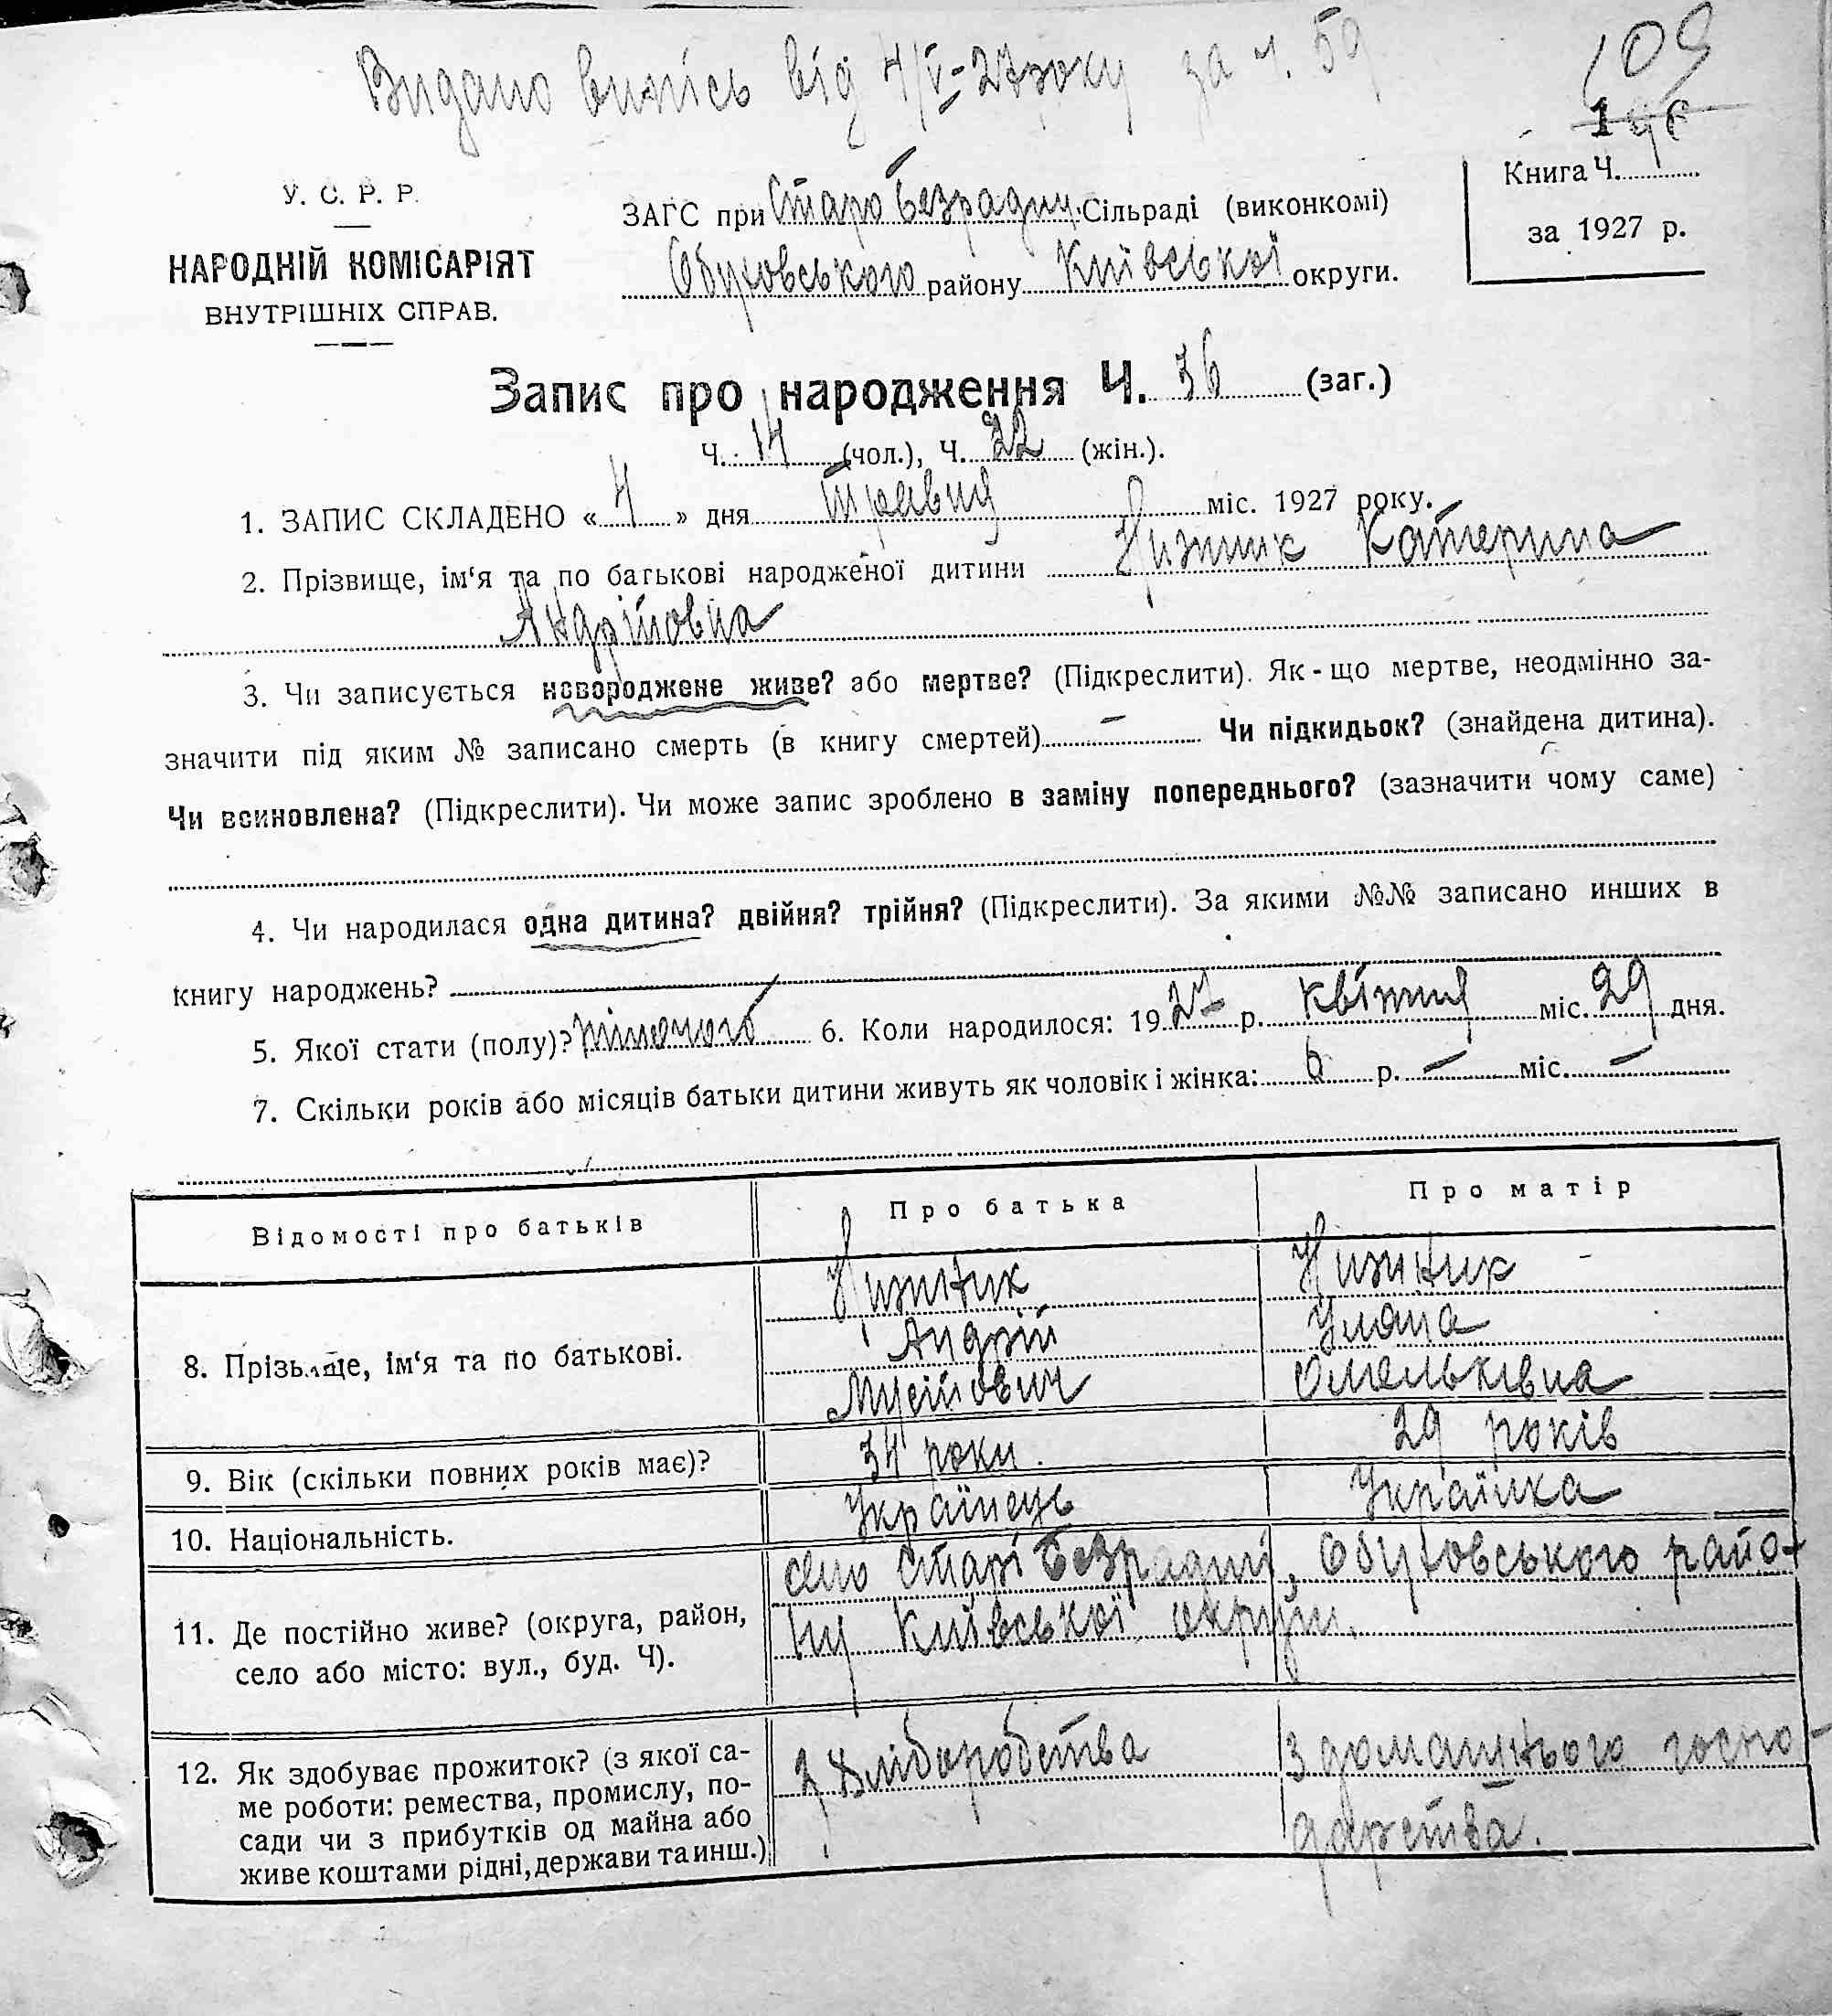 Видано випись від 4/V-27 року за ч. 59
109
У. С. Р. Р.
НАРОДНІЙ КОМІСАРІЯТ
ВНУТРІШНІХ СПРАВ.
ЗАГС при Старо Безрадиц. Сільраді (виконкомі)
Обуховського району Київської округи.
Книга Ч.
за 1927 р.
Запис про народження Ч. 36 (заг.)
Ч. 14 (чол.), Ч. 22 (жін.).
1. ЗАПИС СКЛАДЕНО « 4 » дня травня міс. 1927 року.
2. Прізвище, ім‘я та по батькові народженої дитини Нижник Катерина
Андріівна
3. Чи записується новороджене живе? або мертве? (Підкреслити). Як - що мертве, неодмінно за-
значити під яким № записано смерть (в книгу смертей) — Чи підкидьок? (знайдена дитина).
Чи всиновлена? (Підкреслити). Чи може запис зроблено в заміну попереднього? (зазначити чому саме)
4. Чи народилася одна дитина? двійня? трійня? (Підкреслити). За якими №№ записано инших в
книгу народжень?
5. Якої стати (полу)? жіночого 6. Коли народилося: 1927 р. квітня міс. 29 дня.
7. Скільки років або місяців батьки дитини живуть як чоловік і жінка: 6 р. — міс. —
Відомості про батьків
Про батька
Про матір
8. Прізвище, ім‘я та по батькові.
Нижник
Андрій
Мусійович
Нижник
Уляна
Омельківна
9. Вік (скільки повних років має)?
34 роки.
29 років
10. Національність.
Українець
Українка
11. Де постійно живе? (округа, район,
село або місто: вул., буд. Ч).
село Старі Безрадичі, Обуховського райо-
ну Київської округи.
12. Як здобуває прожиток? (з якої са-
ме роботи: ремества, промислу, по-
сади чи з прибутків од майна або
живе коштами рідні, держави та инш.)
з хліборобства
З домашнього госпо-
дарства.